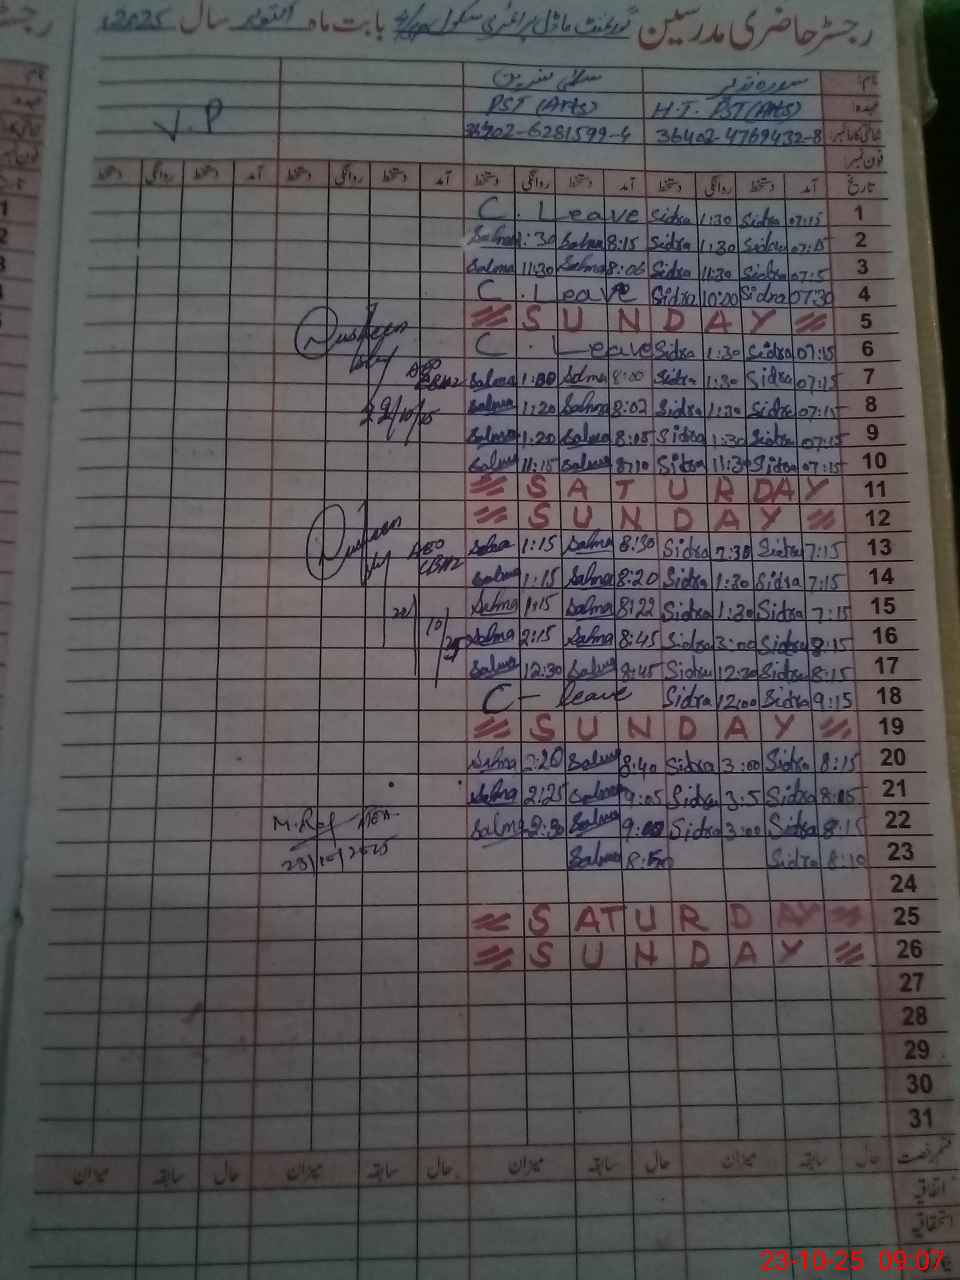 رجسٹر حاضری مدرسین گورنمنٹ ماڈل پرائمری سکول بابت ماہ اکتوبر سال 2025
نام: سدرہ نذیر سلمیٰ نسرین
عہدہ H.T. PST (Arts) PST (Arts) V.P
شناختی کارڈ نمبر 36402-4769432-8 36402-6281599-4
فون نمبر:
تاریخ آمد دستخط روانگی دستخط آمد دستخط روانگی دستخط آمد دستخط روانگی دستخط آمد دستخط روانگی دستخط
C. Leave Sidra 1:30 Sidra 07:15 1
Salma 1:30 Salma 8:15 Sidra 1:30 Sidra 07:15 2
Salma 11:30 Salma 8:06 Sidra 11:30 Sidra 07:15 3
C. Leave Sidra 10:00 Sidra 07:30 4
SUNDAY 5
C. Leave Sidra 1:30 Sidra 07:15 6
AEO Salma 1:00 Salma 8:00 Sidra 1:30 Sidra 07:15 7
22/10/25 Salma 1:20 Salma 8:02 Sidra 1:30 Sidra 07:15 8
Salma 1:20 Salma 8:05 Sidra 1:30 Sidra 07:15 9
Salma 11:15 Salma 8:10 Sidra 11:30 Sidra 07:15 10
SATURDAY 11
SUNDAY 12
AEO Salma 1:15 Salma 8:30 Sidra 1:30 Sidra 7:15 13
Salma 1:15 Salma 8:20 Sidra 1:30 Sidra 7:15 14
Salma 1:15 Salma 8:22 Sidra 1:30 Sidra 7:15 15
22/10/25 Salma 2:15 Salma 8:45 Sidra 3:00 Sidra 8:15 16
Salma 12:30 Salma 8:45 Sidra 12:30 Sidra 8:15 17
C- leave Sidra 12:00 Sidra 9:15 18
SUNDAY 19
Salma 2:20 Salma 8:40 Sidra 3:00 Sidra 8:15 20
Salma 2:25 Salma 9:05 Sidra 3:5 Sidra 8:05 21
Salma 2:30 Salma 9:00 Sidra 3:00 Sidra 8:15 22
23/10/2025 Salma 8:50 Sidra 8:10 23
24
SATURDAY 25
SUNDAY 26
27
28
29
30
31
حال سابقہ میزان حال سابقہ میزان حال سابقہ میزان حال سابقہ میزان
اتفاقیہ
استحقاقیہ
23-10-25 09:07